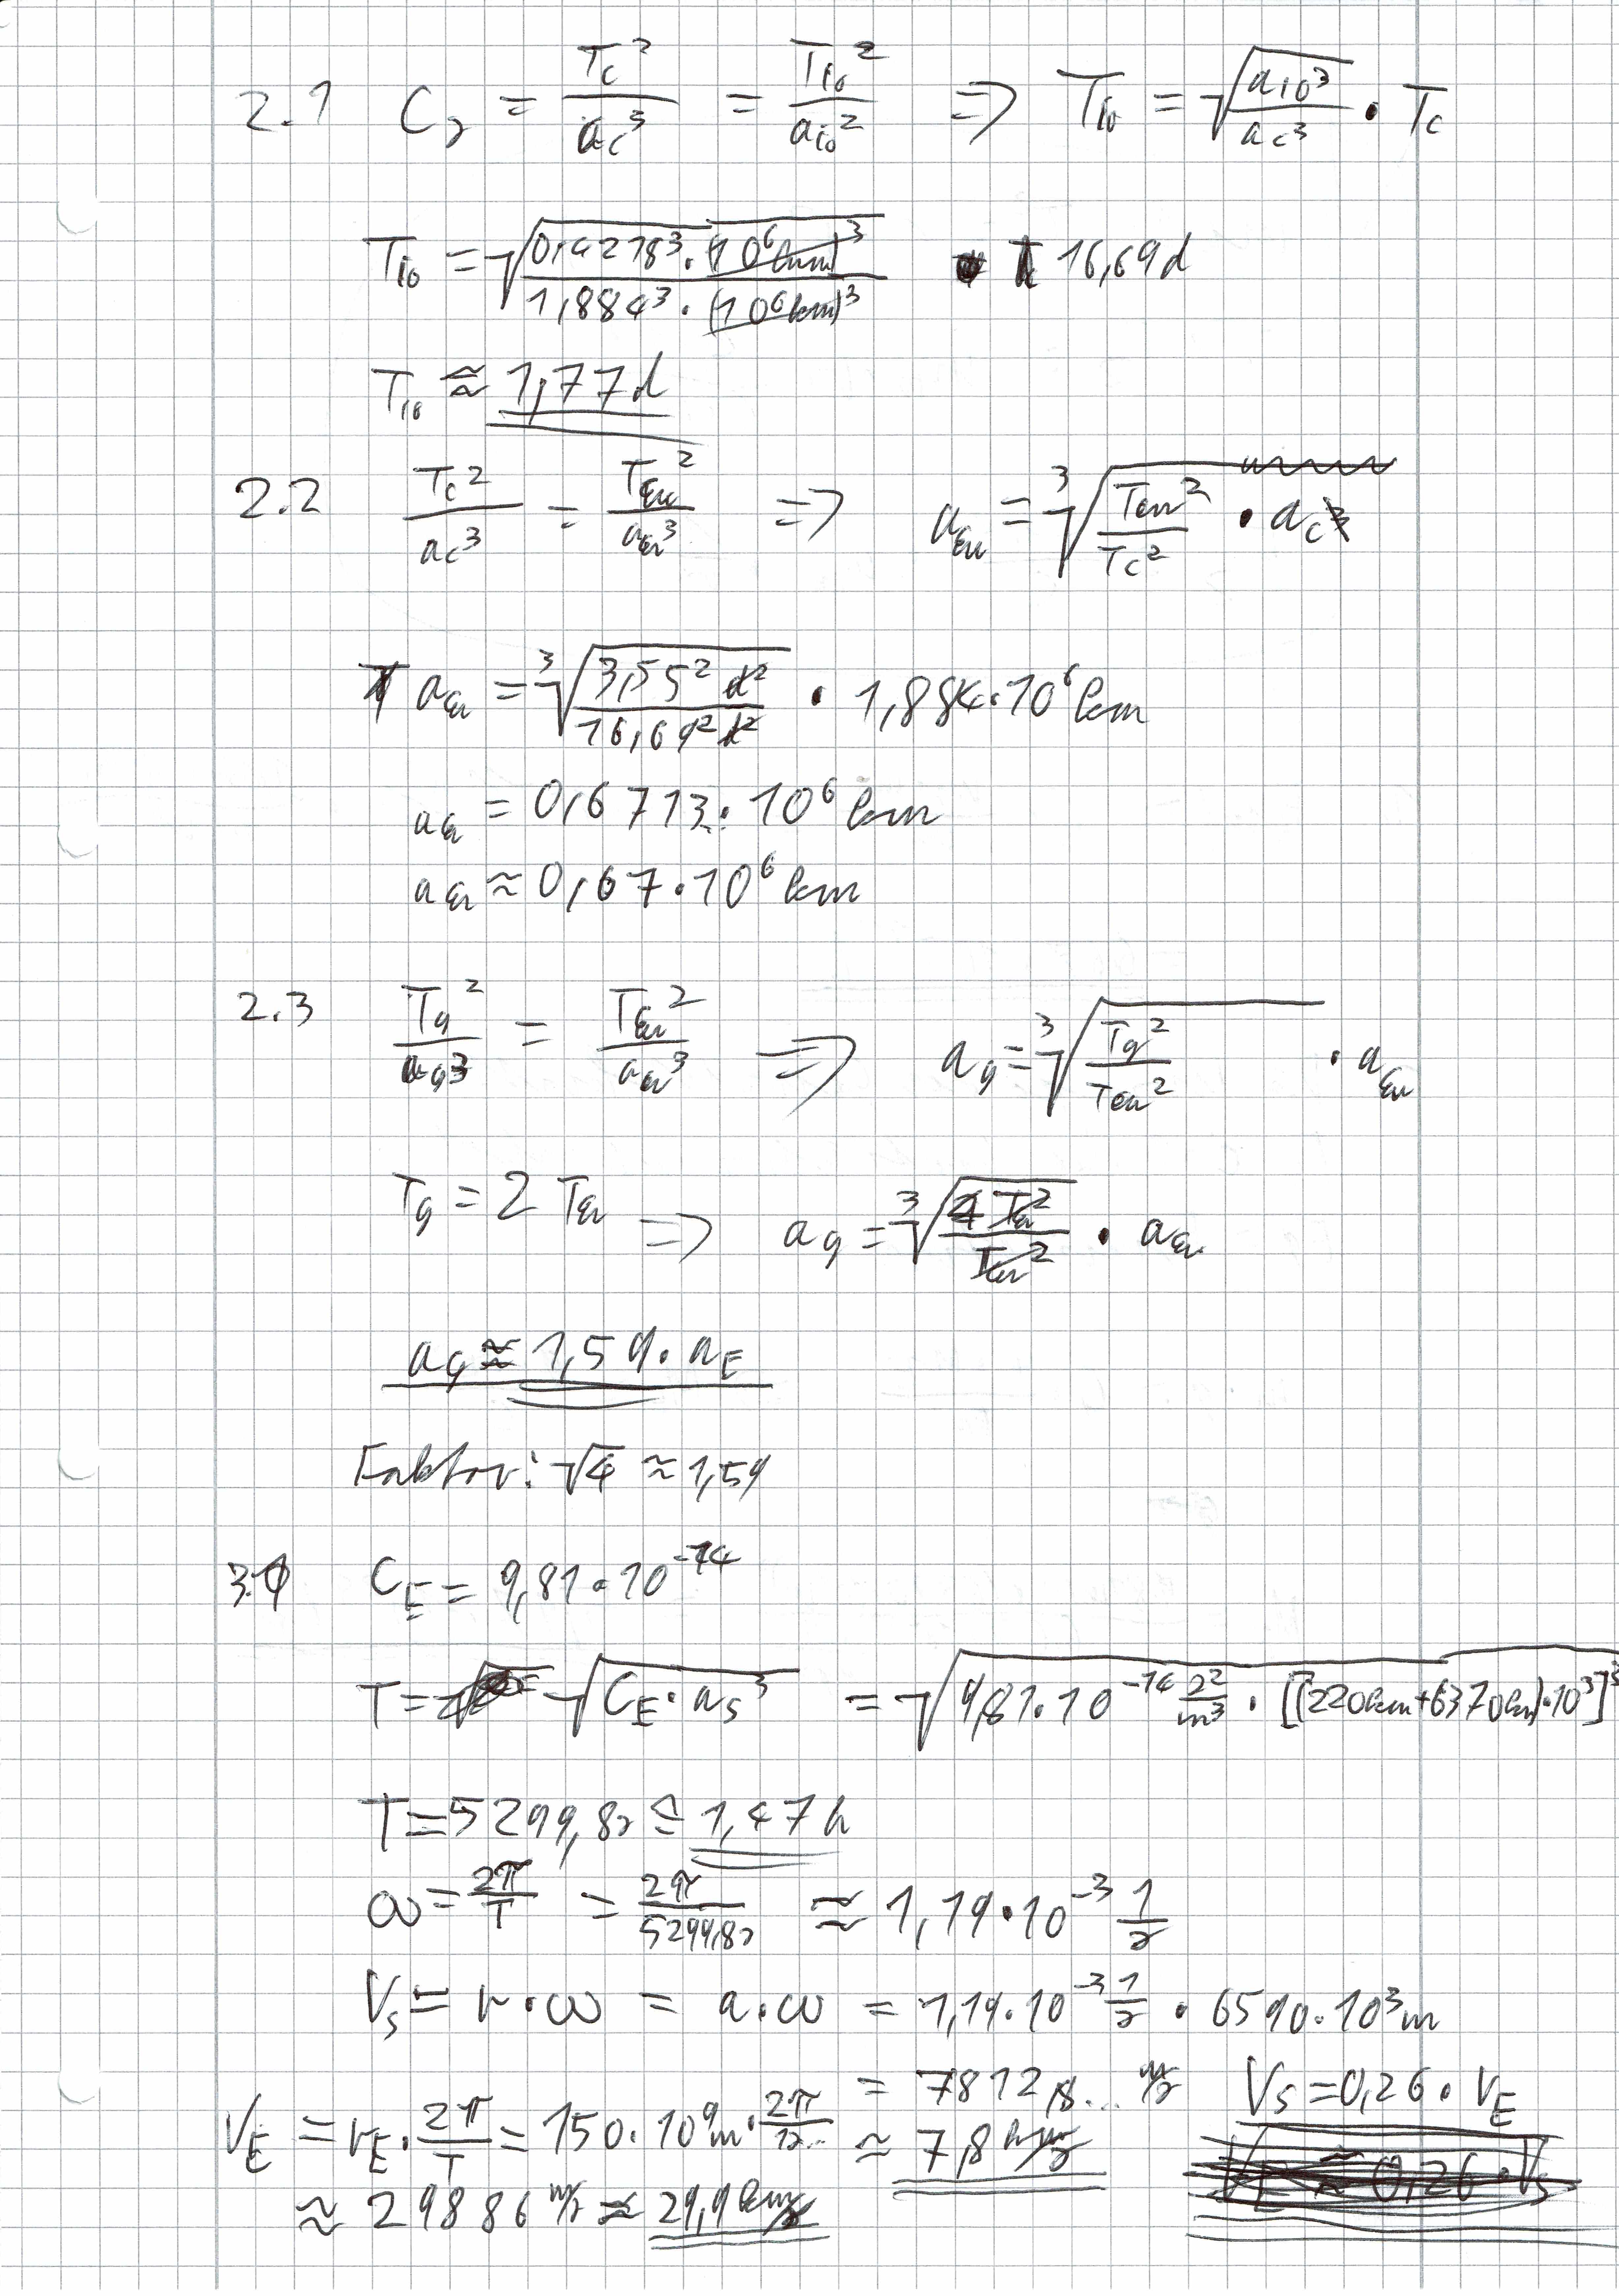 2.1 C₂ = T_c²/a_c³ = T_io²/a_io² => T_io = √(a_io³/a_c³) · T_c
T_io = √(0,4218³ · (10⁶km)³ / 1,884³ · (10⁶km)³) · 16,69d
T_io ≈ 1,77d
2.2 T_c²/a_c³ = T_Eu²/a_Eu³ => a_Eu = ³√(T_Eu²/T_c²) · a_c
a_Eu = ³√(3,55² d²/16,69² d²) · 1,884·10⁶km
a_Eu = 0,6713·10⁶km
a_Eu ≈ 0,67·10⁶km
2.3 T_g²/a_g³ = T_Eu²/a_Eu³ => a_g = ³√(T_g²/T_Eu²) · a_Eu
T_g = 2 T_Eu => a_g = ³√(4 T_Eu²/T_Eu²) · a_Eu
a_g ≈ 1,59·a_E
Faktor: √4 ≈ 1,59
3. C_E = 9,81·10⁻¹⁴
T = √(C_E·a_s³) = √(9,81·10⁻¹⁴ s²/m³ · [(220km+6370km)·10³]³)
T = 5299,8s ≙ 1,47h
ω = 2π/T = 2π/5299,8s ≈ 1,19·10⁻³ 1/s
V_s = r·ω = a·ω = 1,19·10⁻³ 1/s · 6590·10³m
= 7812,8... m/s V_s = 0,26·V_E
V_E = r_E · 2π/T = 150·10⁹m · 2π/1a.. ≈ 7,8 km/s
≈ 29886 m/s ≈ 29,9 km/s